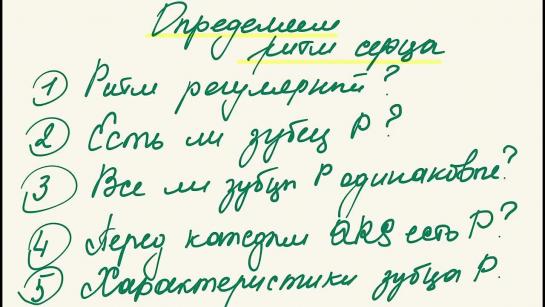 Определяем
ритм сердца
1 Ритм регулярный?
2 Есть ли зубец P?
3 Все ли зубцы P одинаковые?
4 Перед каждым QRS есть P?
5 Характеристики зубца P.